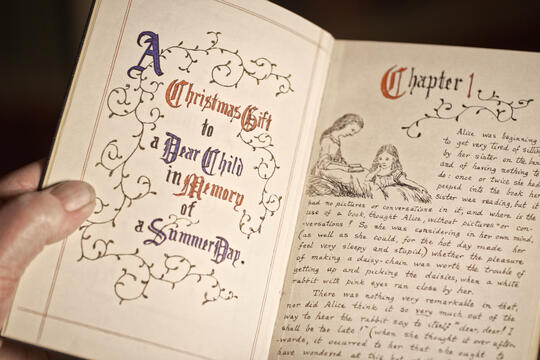 A
Christmas Gift
to
a Dear Child
in Memory
of
a Summer Day.
Chapter 1
Alice was beginning
to get very tired of sitting
by her sister on the bank
and of having nothing to
do: once or twice she had
peeped into the book her
sister was reading, but it
had no pictures or conversations in it, and where is the
use of a book, thought Alice, without pictures or con-
-versations? So she was considering in her own mind,
(as well as she could, for the hot day made her
feel very sleepy and stupid,) whether the pleasure
of making a daisy-chain was worth the trouble of
getting up and picking the daisies, when a white
rabbit with pink eyes ran close by her.
There was nothing very remarkable in that,
nor did Alice think it so very much out of the
way to hear the rabbit say to itself "dear, dear! I
shall be too late!" (when she thought it over after-
-wards, it occurred to her that she ought to
have wondered at this